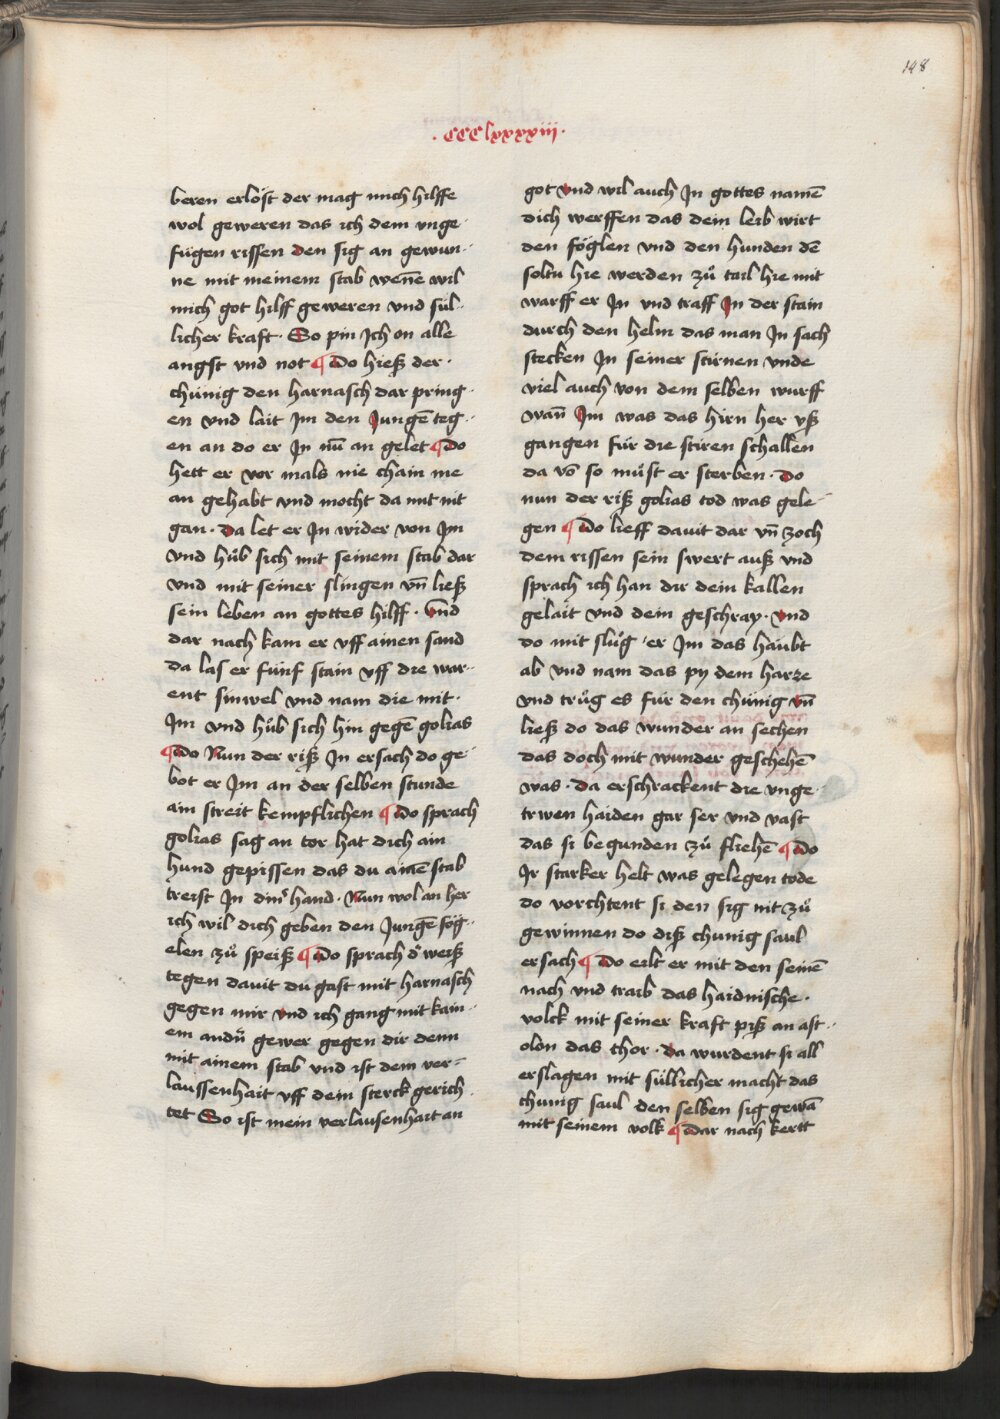 148
· CCClxxxxiii ·
beren erlöst der mag mich hilffe
wol geweren das ich dem vnge-
fügen rissen den sig an gewun-
ne mit meinem stab wenne wil
mich got hilff geweren vnd sül-
licher kraft · So pin Ich on alle
angst vnd not ¶ Do hieß der ·
chünig den harnasch dar pring-
en vnd lait Im den Jungē teg-
en an do er In nū an gelet ¶ Do
hett er vor mals nie chain me
an gehabt vnd mocht da mit nit
gan · Da let er In wider von Im
vnd hůb sich mit seinem stab dar
vnd mit seiner slingen vn̄ ließ
sein leben an gottes hilff · Vnd
dar nach kam er vff ainen sand
da las er fünf stain vff die war-
ent sinwel vnd nam die mit ·
Im vnd hůb sich hin gegē golias
¶ Do Nun der riß In ersach do ge-
bot er Im an der selben stunde
ain streit kempflichen ¶ Do sprach
golias sag an tor hat dich ain
hund gepissen das du ainē stab
treist In dinr hand · Nun wol an her
ich wil dich geben den Jungē fög-
elen zů speiß ¶ Do sprach dr weiß
tegen dauit du gast mit harnasch
gegen mir vnd ich gang mit kain-
em andn̄ gewer gegen dir denn
mit ainem stab vnd ist dem ver-
laussenhait vff dein sterck gerich
tet So ist mein verlausenhait an
got vnd wil auch In gottes namē
dich werffen das dein leib wirt
den föglen vnd den hunden dē
soltu hie werden zů tail hie mit
warff er In vnd traff In der stain
durch den helm das man In sach
stecken In seiner stirnen vnde
viel auch von dem selben wurff
wan̄ Im was das hirn her vß
gangen für die stiren schallen
da vō so můst er sterben · Do
nun der riß golias tod was gele-
gen ¶ Do lieff dauit dar vn̄ zoch
dem rissen sein swert auß vnd
sprach ich han dir dein kallen
gelait vnd dein geschray · Vnd
do mit slůg er Im das haubt
ab vnd nam das py dem harze
vnd trůg es für den chünig vn̄
ließ do das wunder an sechen
das doch mit wunder geschehē
was · da erschrackent die vnge-
trwen haiden gar ser vnd vast
das si begunden zů fliehē ¶ Do
Ir starker helt was gelegen tode
do vorchtent si den sig nit zů
gewinnen do diß chunig saul
ersach ¶ Do eilt er mit den seinē
nach vnd traib das haidnische ·
volck mit seiner kraft piß an ast-
olon das thor · Da wurdent si all
erslagen mit süllicher macht das
chunig saul den selben sig gewā
mit seinem volk ¶ Dar nach kertt